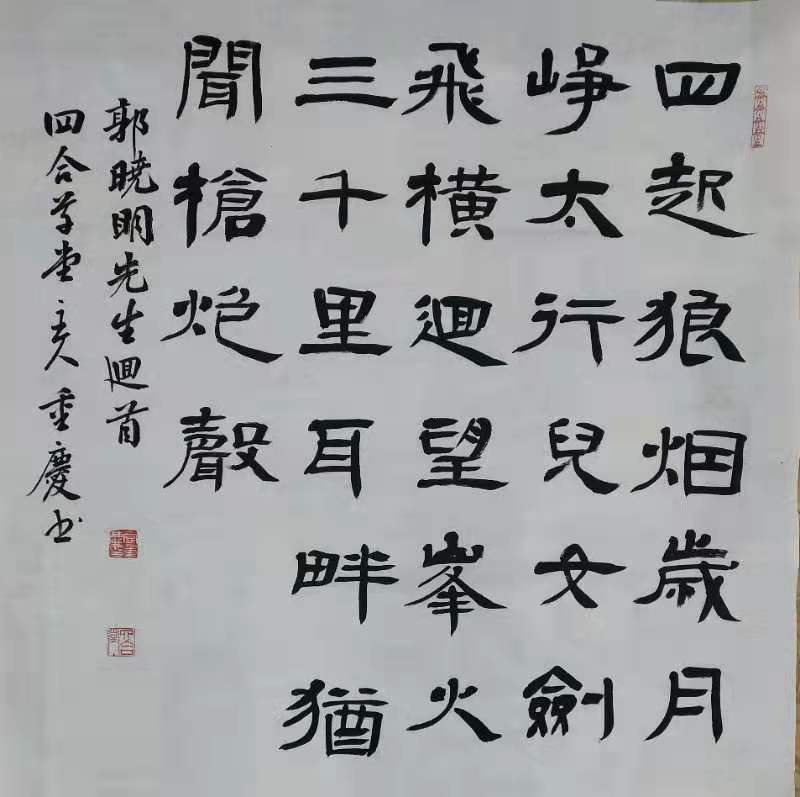 四起狼烟歲月
崢太行兒女劍
飛橫迴望峯火
三千里耳畔猶
聞槍炮聲
郭曉明先生迴首
四合草堂主人重慶书